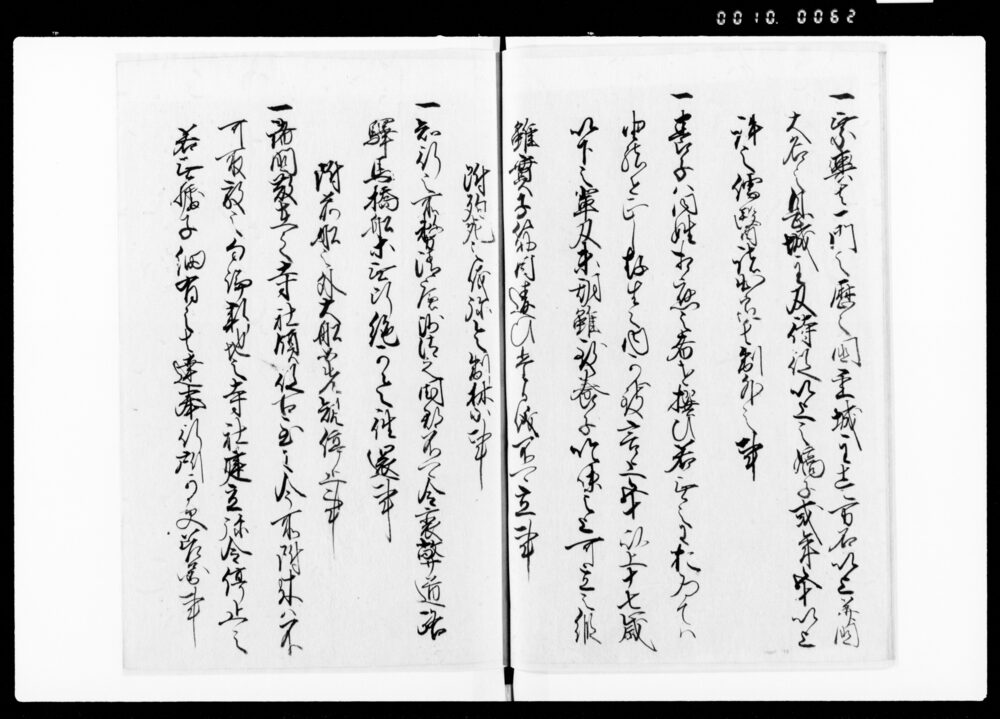 0010. 0062
一乗輿者一門之歴々国主城主壱万石以上并国
大名之息城主及侍従以上之嫡子或年五十以上
許之儒医諸出家者制外之事
一養子ハ同姓相応之者を撰ひ若無之におゐてハ
由緒を正し存生之内可致言上五十以上十七歳
以下之輩及末期雖致養子吟味之上可立之縦
雖実子筋目違ひたる儀不可立事
附殉死之儀弥令制禁事
一知行之所務清廉沙汰之国郡不可令衰弊道路
驛馬橋船等無断絶可令往還事
附荷船之外大船如先規停止事
一諸国散在之寺社領従古至于今所附来ハ不
可取放之勿論新地之寺社建立弥令停止之
若無據子細有之者達奉行所可受差図事